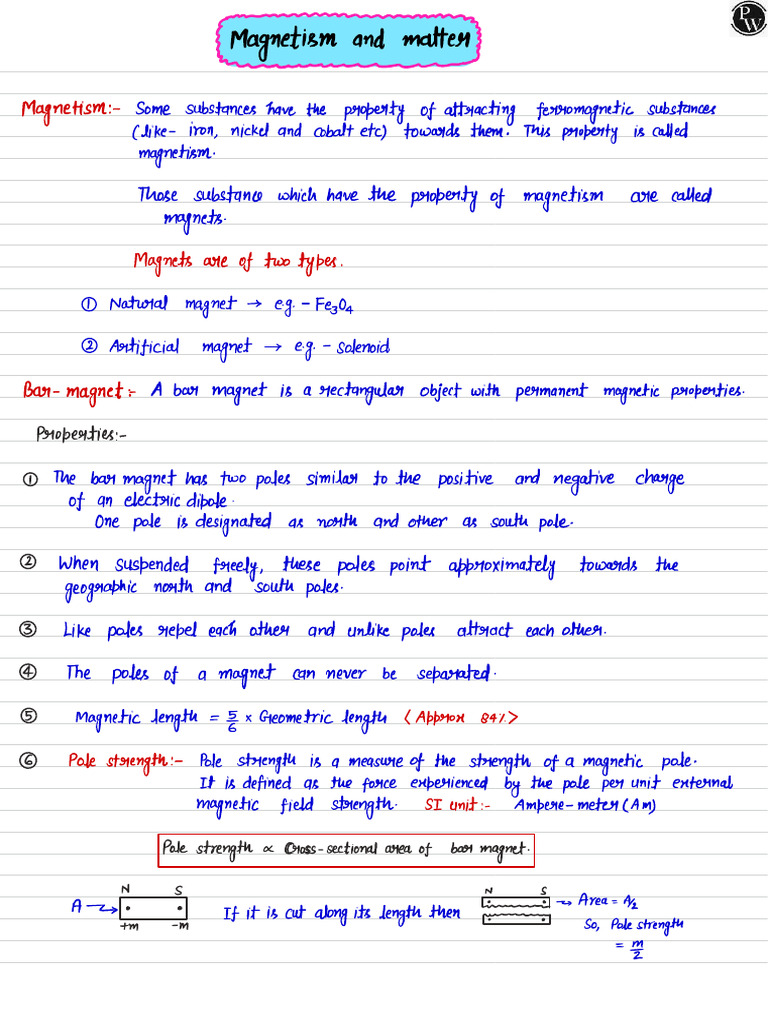 PW
Magnetism and matter
Magnetism:- Some substances have the property of attracting ferromagnetic substances
(like- iron, nickel and cobalt etc) towards them. This property is called
magnetism.
Those substance which have the property of magnetism are called
magnets.
Magnets are of two types.
① Natural magnet → e.g. - Fe₃O₄
② Artificial magnet → e.g. - Solenoid
Bar-magnet:- A bar magnet is a rectangular object with permanent magnetic properties.
Properties:-
① The bar magnet has two poles similar to the positive and negative charge
of an electric dipole.
One pole is designated as north and other as south pole.
② When suspended freely, these poles point approximately towards the
geographic north and south poles.
③ Like poles repel each other and unlike poles attract each other.
④ The poles of a magnet can never be separated.
⑤ Magnetic length = 5/6 × Geometric length <Approx 84%>
⑥ Pole strength:- Pole strength is a measure of the strength of a magnetic pole.
It is defined as the force experienced by the pole per unit external
magnetic field strength. SI unit:- Ampere-meter (Am)
Pole strength ∝ Cross-sectional area of bar magnet.
N S
A
+m -m
If it is cut along its length then
N S
→ Area = A/2
So, Pole strength
= m/2